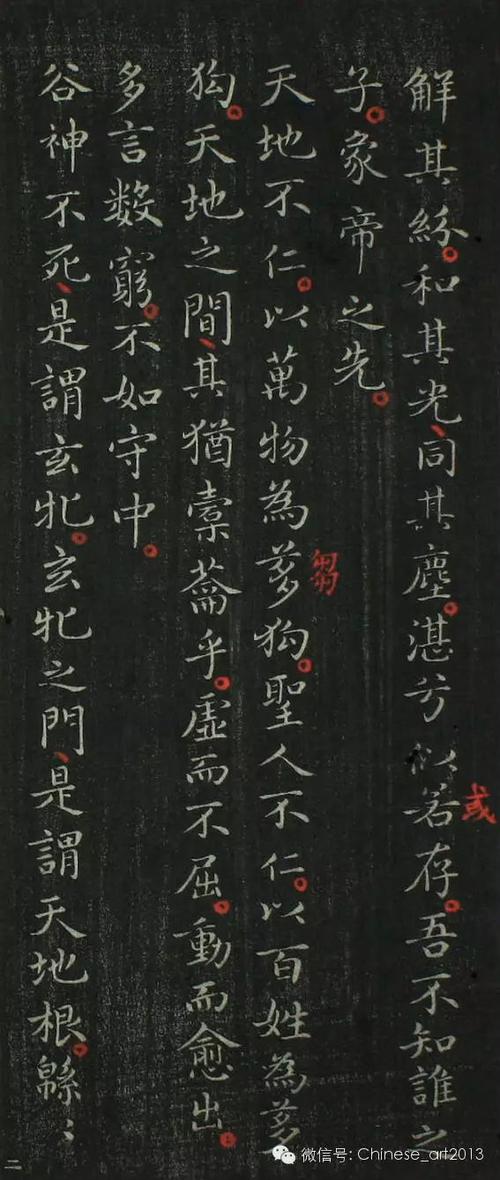 解其紛。和其光、同其塵。湛兮似若存。吾不知誰之
或
子。象帝之先。
天地不仁。以萬物為芻狗。聖人不仁。以百姓為芻
芻
狗。天地之間、其猶橐籥乎。虛而不屈。動而愈出。
多言數窮。不如守中。
谷神不死、是謂玄牝。玄牝之門、是謂天地根。緜〻
二
微信号: Chinese_art2013